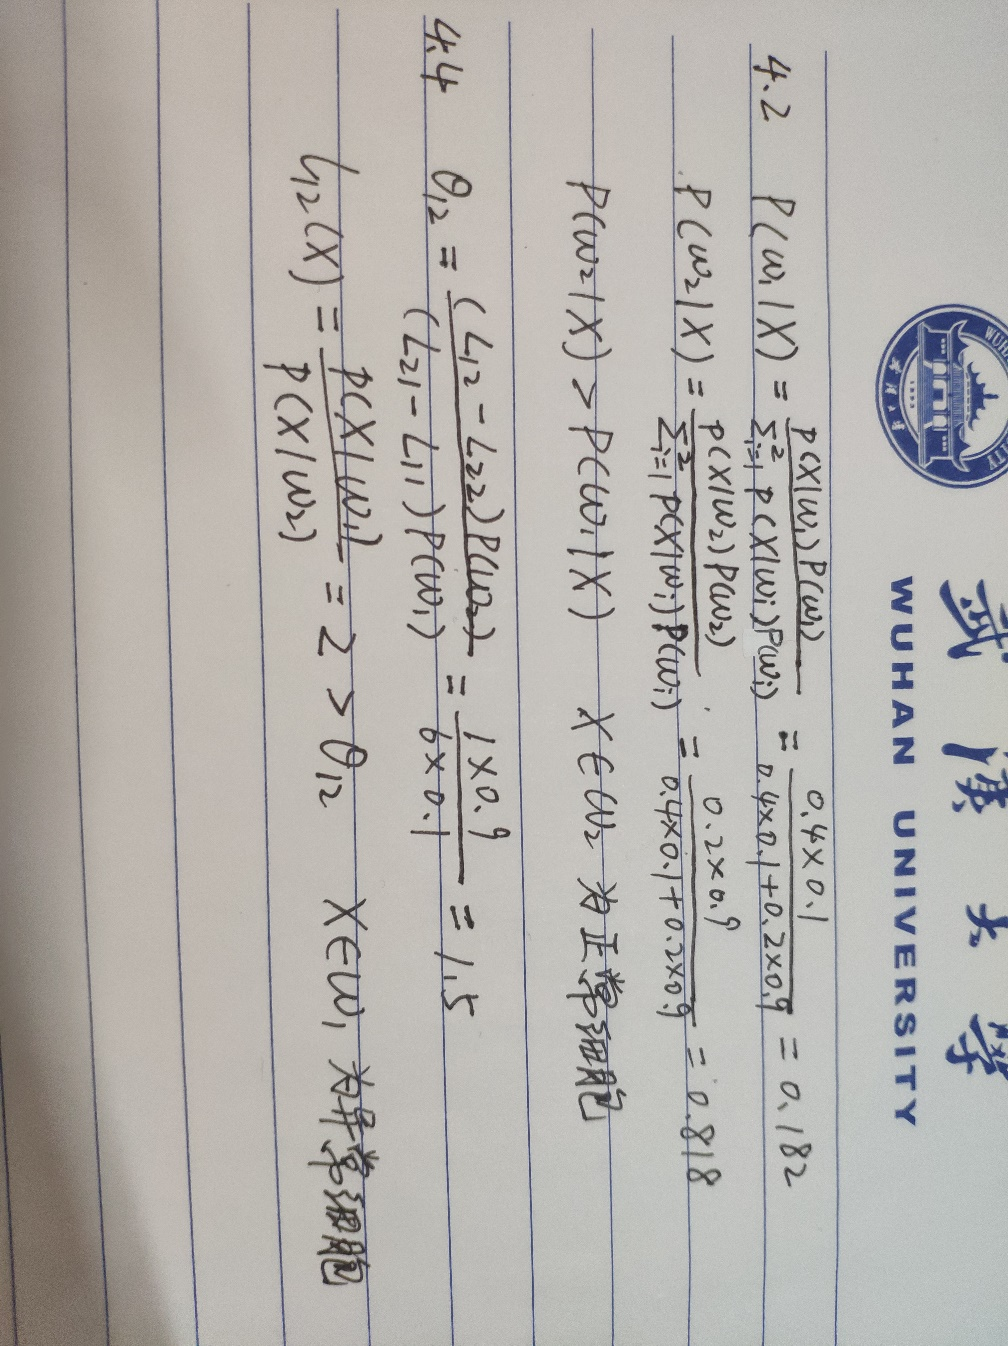 武汉大学
WUHAN UNIVERSITY
4.2 P(ω₁|X) = p(X|ω₁)P(ω₁) / Σᵢ₌₁² p(X|ωᵢ)P(ωᵢ) = 0.4×0.1 / 0.4×0.1+0.2×0.9 = 0.182
P(ω₂|X) = p(X|ω₂)P(ω₂) / Σᵢ₌₁² p(X|ωᵢ)P(ωᵢ) = 0.2×0.9 / 0.4×0.1+0.2×0.9 = 0.818
P(ω₂|X) > P(ω₁|X) X∈ω₂ 为正常细胞
4.4 θ₁₂ = (L₁₂-L₂₂)P(ω₂) / (L₂₁-L₁₁)P(ω₁) = 1×0.9 / 6×0.1 = 1.5
l₁₂(X) = p(X|ω₁) / p(X|ω₂) = 2 > θ₁₂ X∈ω₁ 为异常细胞